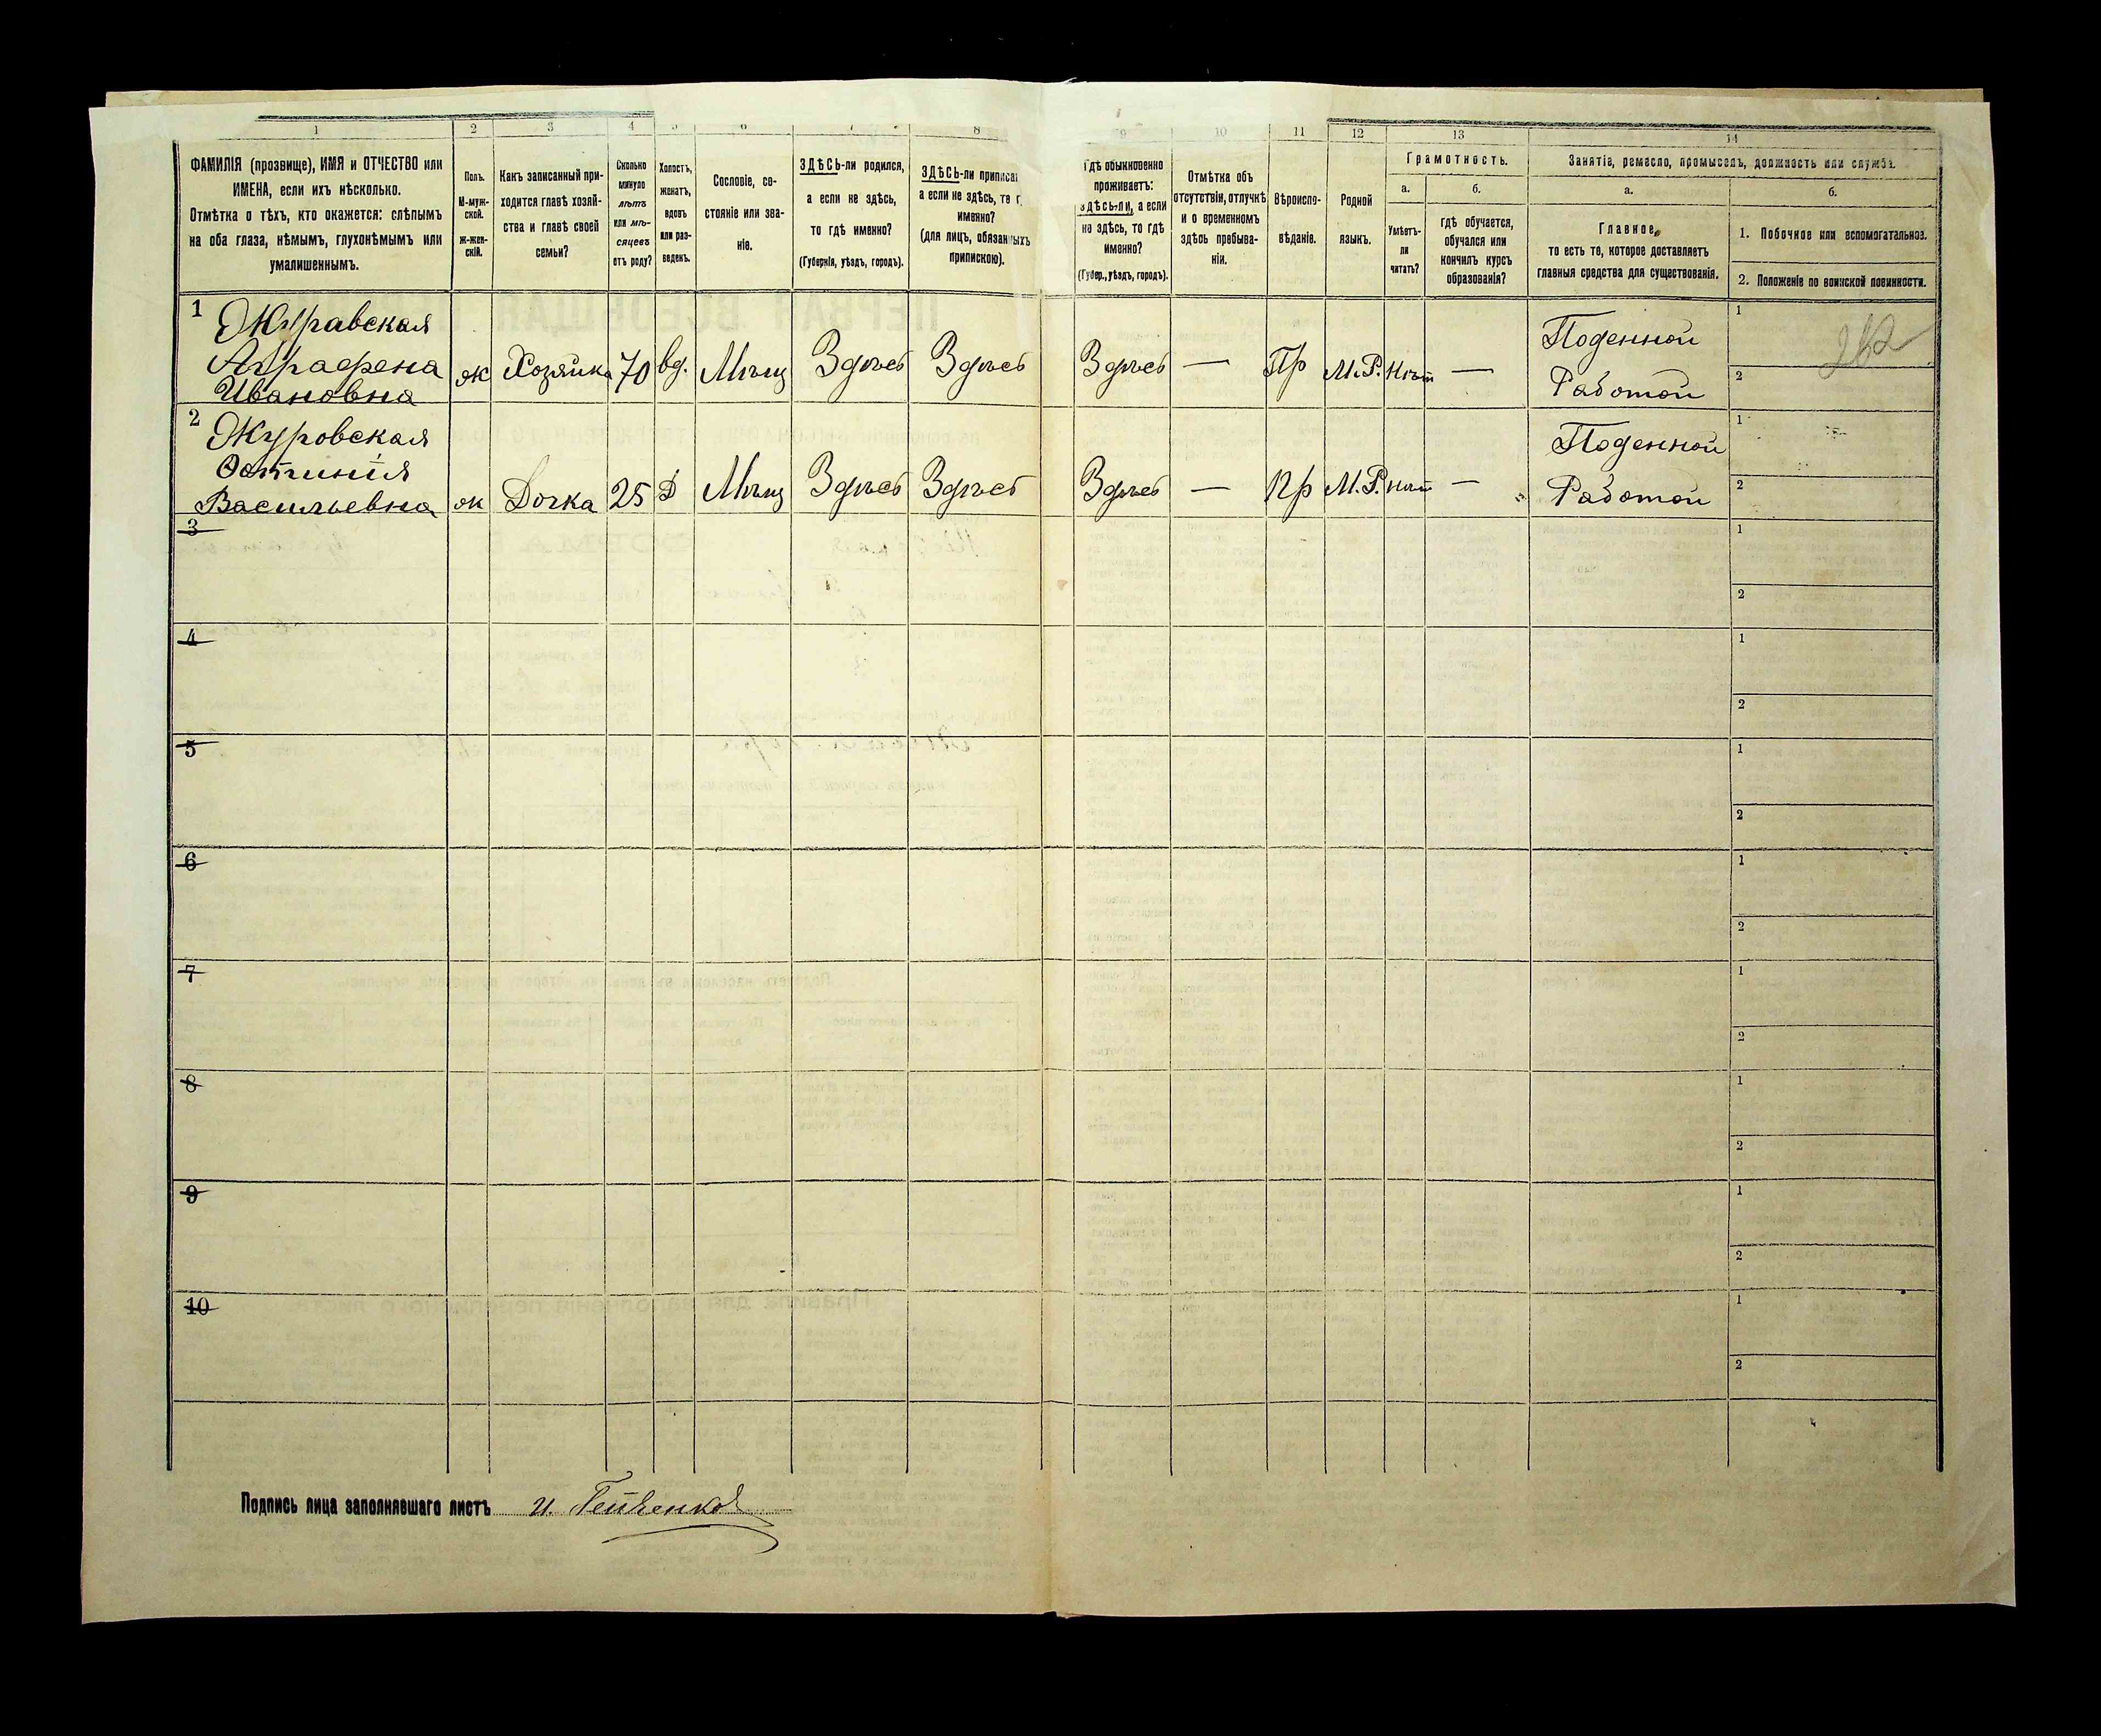 1 2 3 4 5 6 7 8 9 10 11 12 13 14
ФАМИЛІЯ (прозвище), ИМЯ и ОТЧЕСТВО или
ИМЕНА, если ихъ нѣсколько.
Отмѣтка о тѣхъ, кто окажется: слѣпымъ
на оба глаза, нѣмымъ, глухонѣмымъ или
умалишеннымъ.
Полъ.
М-муж-
ской.
Ж-жен-
скій.
Какъ записанный при-
ходится главѣ хозяй-
ства и главѣ своей
семьи?
Сколько
минуло
лѣтъ
или мѣ-
сяцевъ
отъ роду?
Холостъ,
женатъ,
вдовъ
или раз-
веденъ.
Сословіе, со-
стояніе или зва-
ніе.
ЗДѢСЬ-ли родился,
а если не здѣсь,
то гдѣ именно?
(Губернія, уѣздъ, городъ).
ЗДѢСЬ-ли приписа
а если не здѣсь, то г
именно?
(для лицъ, обязанныхъ
припискою).
Гдѣ обыкновенно
проживаетъ:
здѣсь-ли, а если
не здѣсь, то гдѣ
именно?
(Губер., уѣздъ, городъ).
Отмѣтка объ
отсутствіи, отлучкѣ
и о временномъ
здѣсь пребыва-
ніи.
Вѣроиспо-
вѣданіе.
Родной
языкъ.
Грамотность.
а.
Умѣетъ-
ли
читать?
б.
гдѣ обучается,
обучался или
кончилъ курсъ
образованія?
Занятіе, ремесло, промыселъ, должность или служба.
а.
Главное,
то есть то, которое доставляетъ
главныя средства для существованія.
б.
1. Побочное или вспомогательное.
2. Положеніе по воинской повинности.
1 Журавская
Аграфена
Ивановна
ж Хозяйка 70 вд. Мѣщ Здѣсь Здѣсь Здѣсь — Пр М.Р. нѣт —
Поденной
Работой
1
2
2 Журовская
Устинія
Васильевна
ж Дочка 25 Д Мѣщ Здѣсь Здѣсь Здѣсь — Пр М.Р. нѣт —
Поденной
Работой
1
2
3
1
2
4
1
2
5
1
2
6
1
2
7
1
2
8
1
2
9
1
2
10
1
2
Подпись лица заполнявшаго листъ